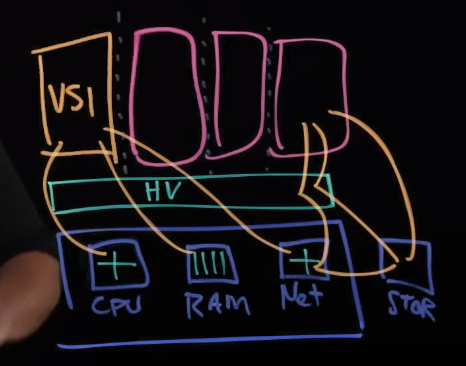 VSI
HV
CPU RAM Net STOR